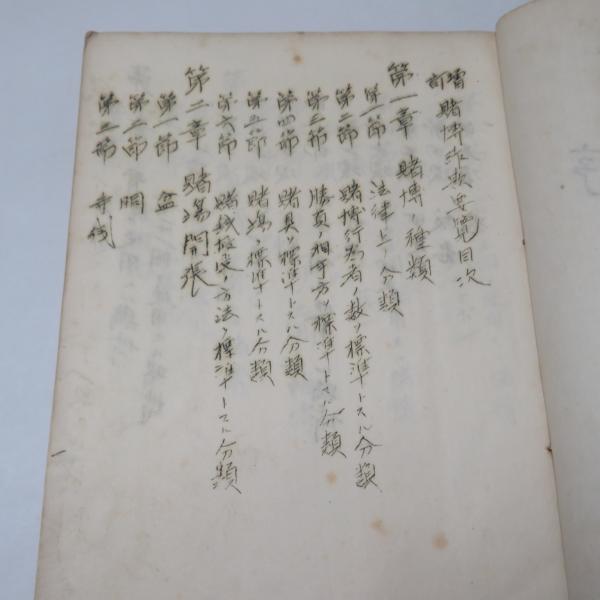 増訂 賭博作要覧目次
第一章 賭博ノ種類
第一節 法律上ノ分類
第二節 賭博行為者ノ数ヲ標準トスル分類
第三節 勝負ノ相手方ヲ標準トスル分類
第四節 賭具ヲ標準トスル分類
第五節 賭場ヲ標準トスル分類
第六節 賭銭ノ方法ヲ標準トスル分類
第二章 賭場開張
第一節 盆
第二節 胴
第三節 寺銭